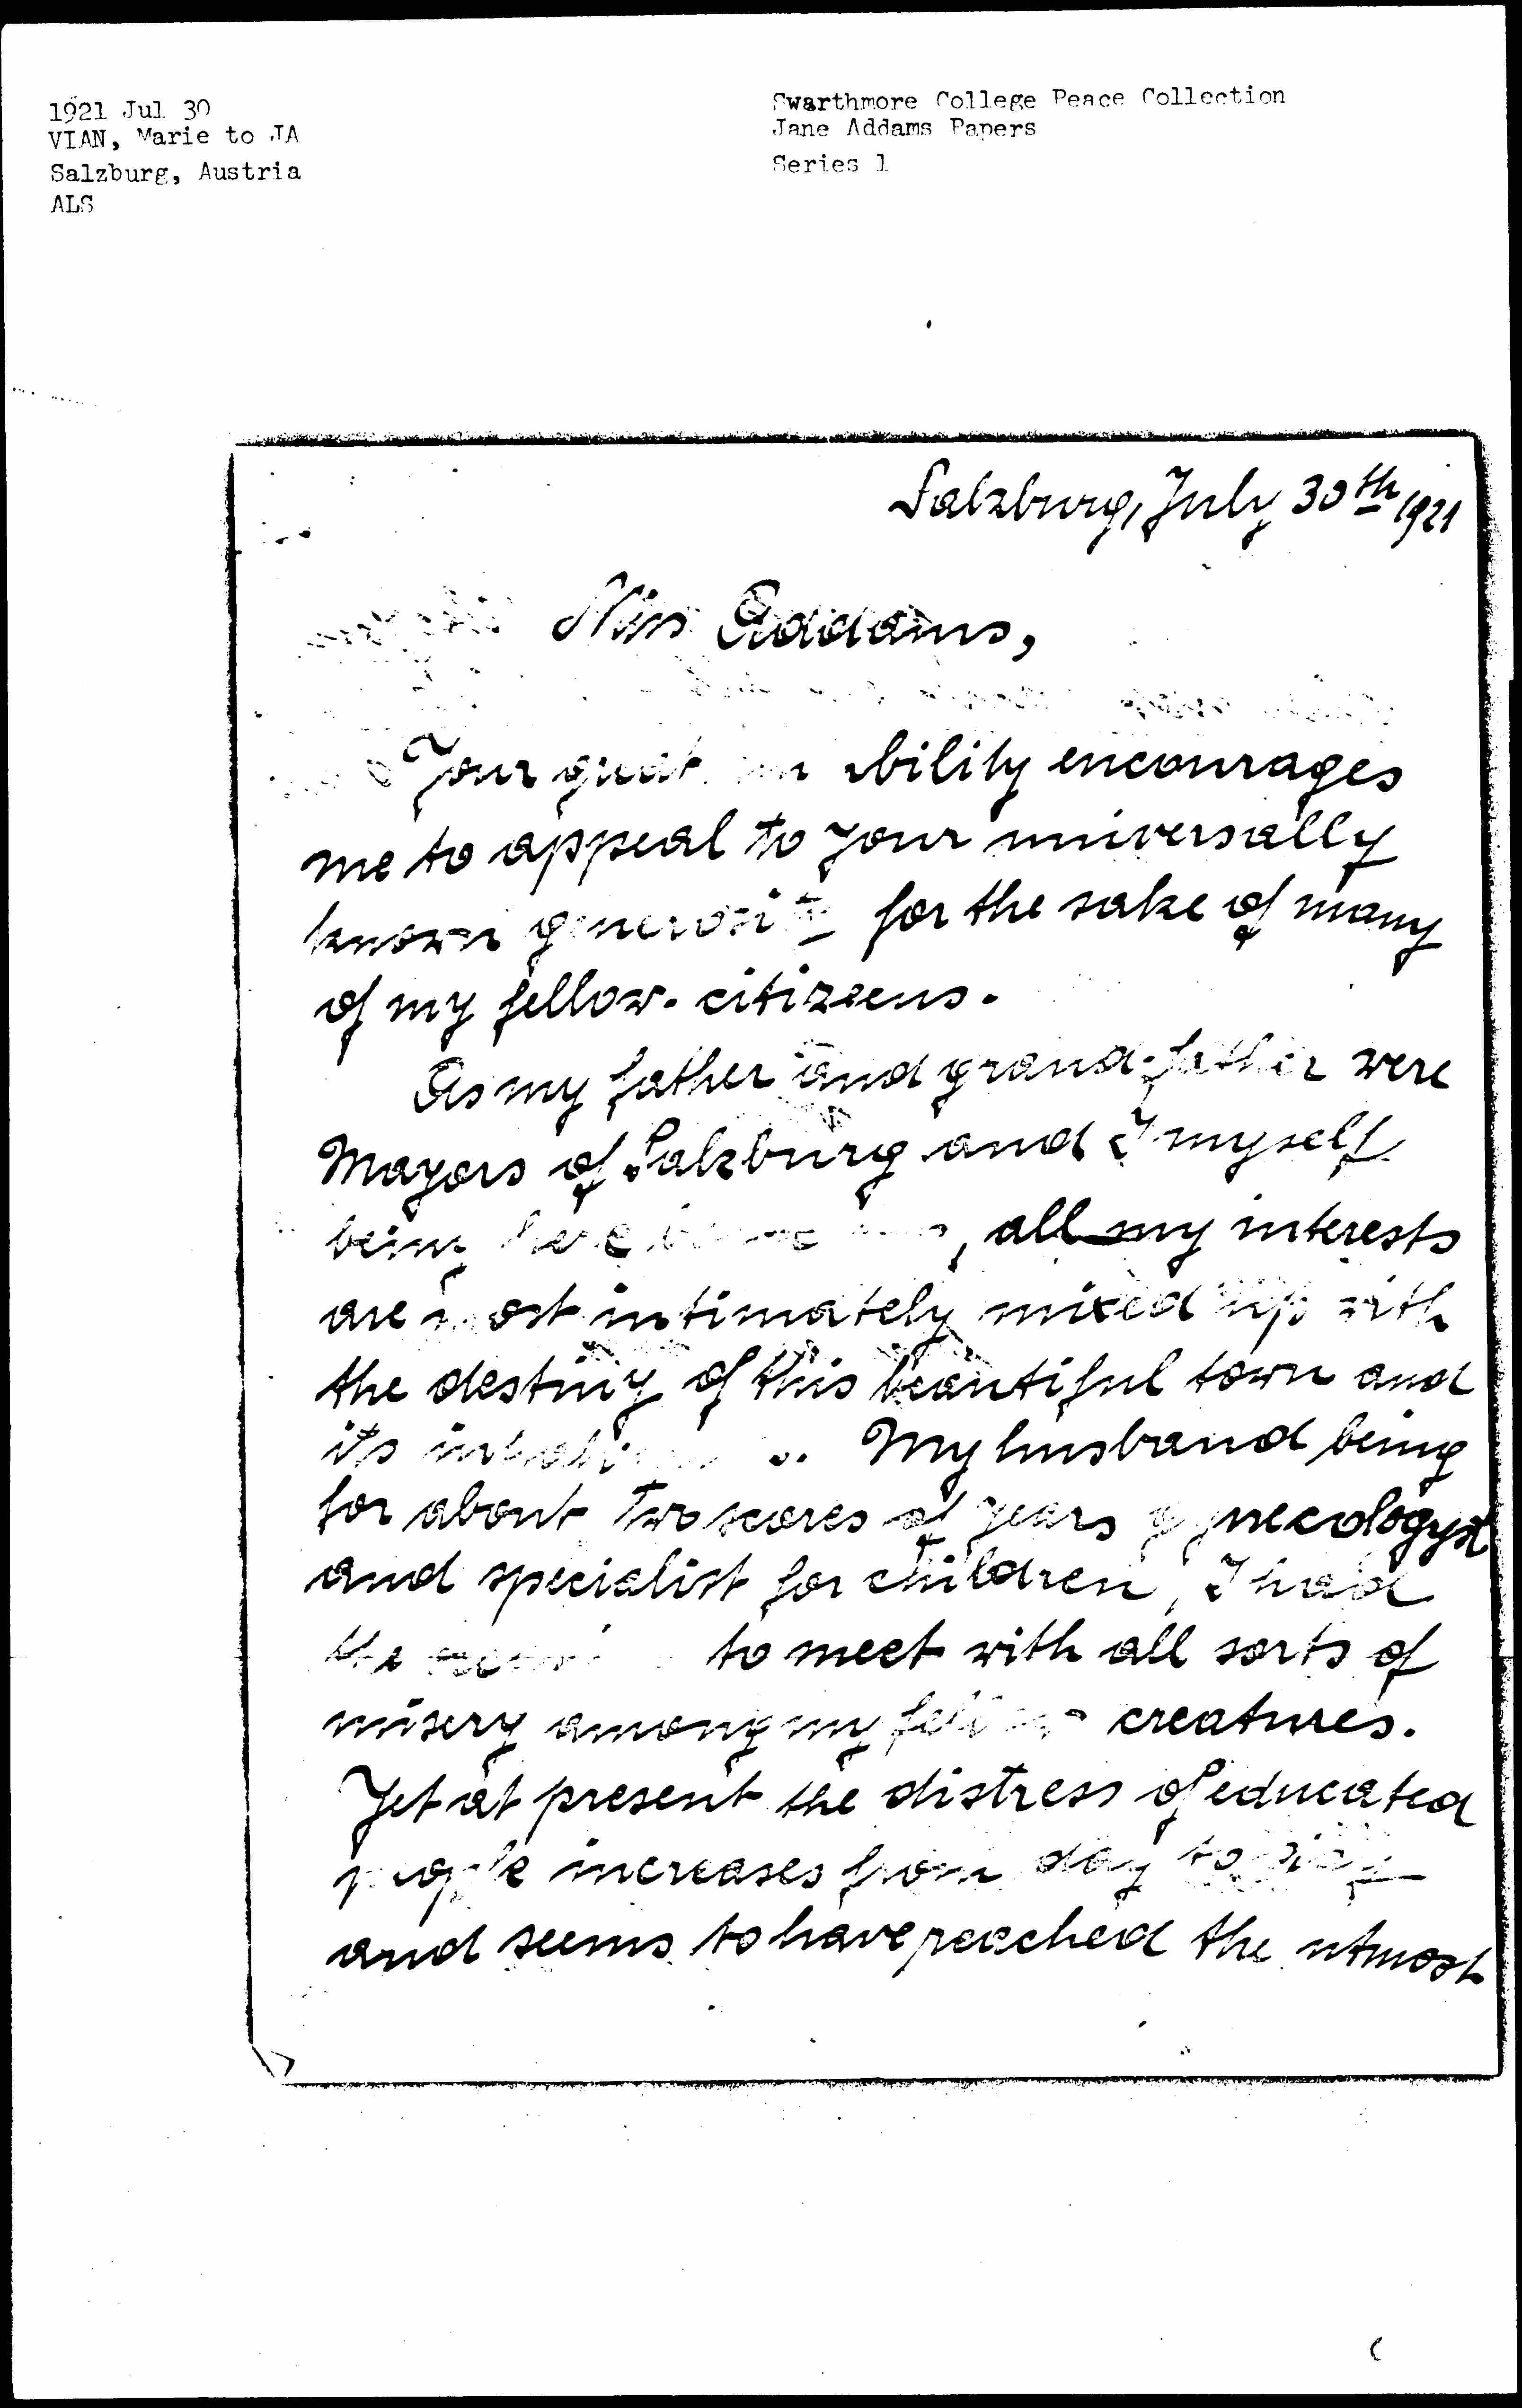 1921 Jul 30
VIAN, Marie to JA
Salzburg, Austria
ALS
Swarthmore College Peace Collection
Jane Addams Papers
Series 1
Salzburg, July 30th 1921
Miss Addams,
Your great encourages
me to appeal to your universally
known generosity for the sake of many
of my fellow-citizeens.
As my father and grand-father were
Mayors of Salzburg and I myself
being , all my interests
are most intimately mixed up with
the destiny of this beautiful town and
it's . My husband being
for about two scores of years gynecologyst
and specialist for children, I had
the to meet with all sorts of
misery among my fellow creatures.
Yet at present the distress of educated
people increases from day to day
and seems to have reached the utmost